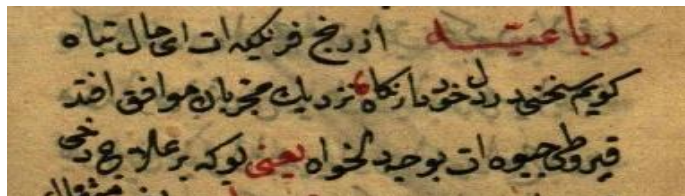 رباعیّه از رنج فرنکیه ات ای حال تباه
کویم سخنی در دل خود دار نکاه نزدیك مجربان موافق افتد
قیروطی جیوه ات بوجه دلخواه یعنی کوکه بر علاج